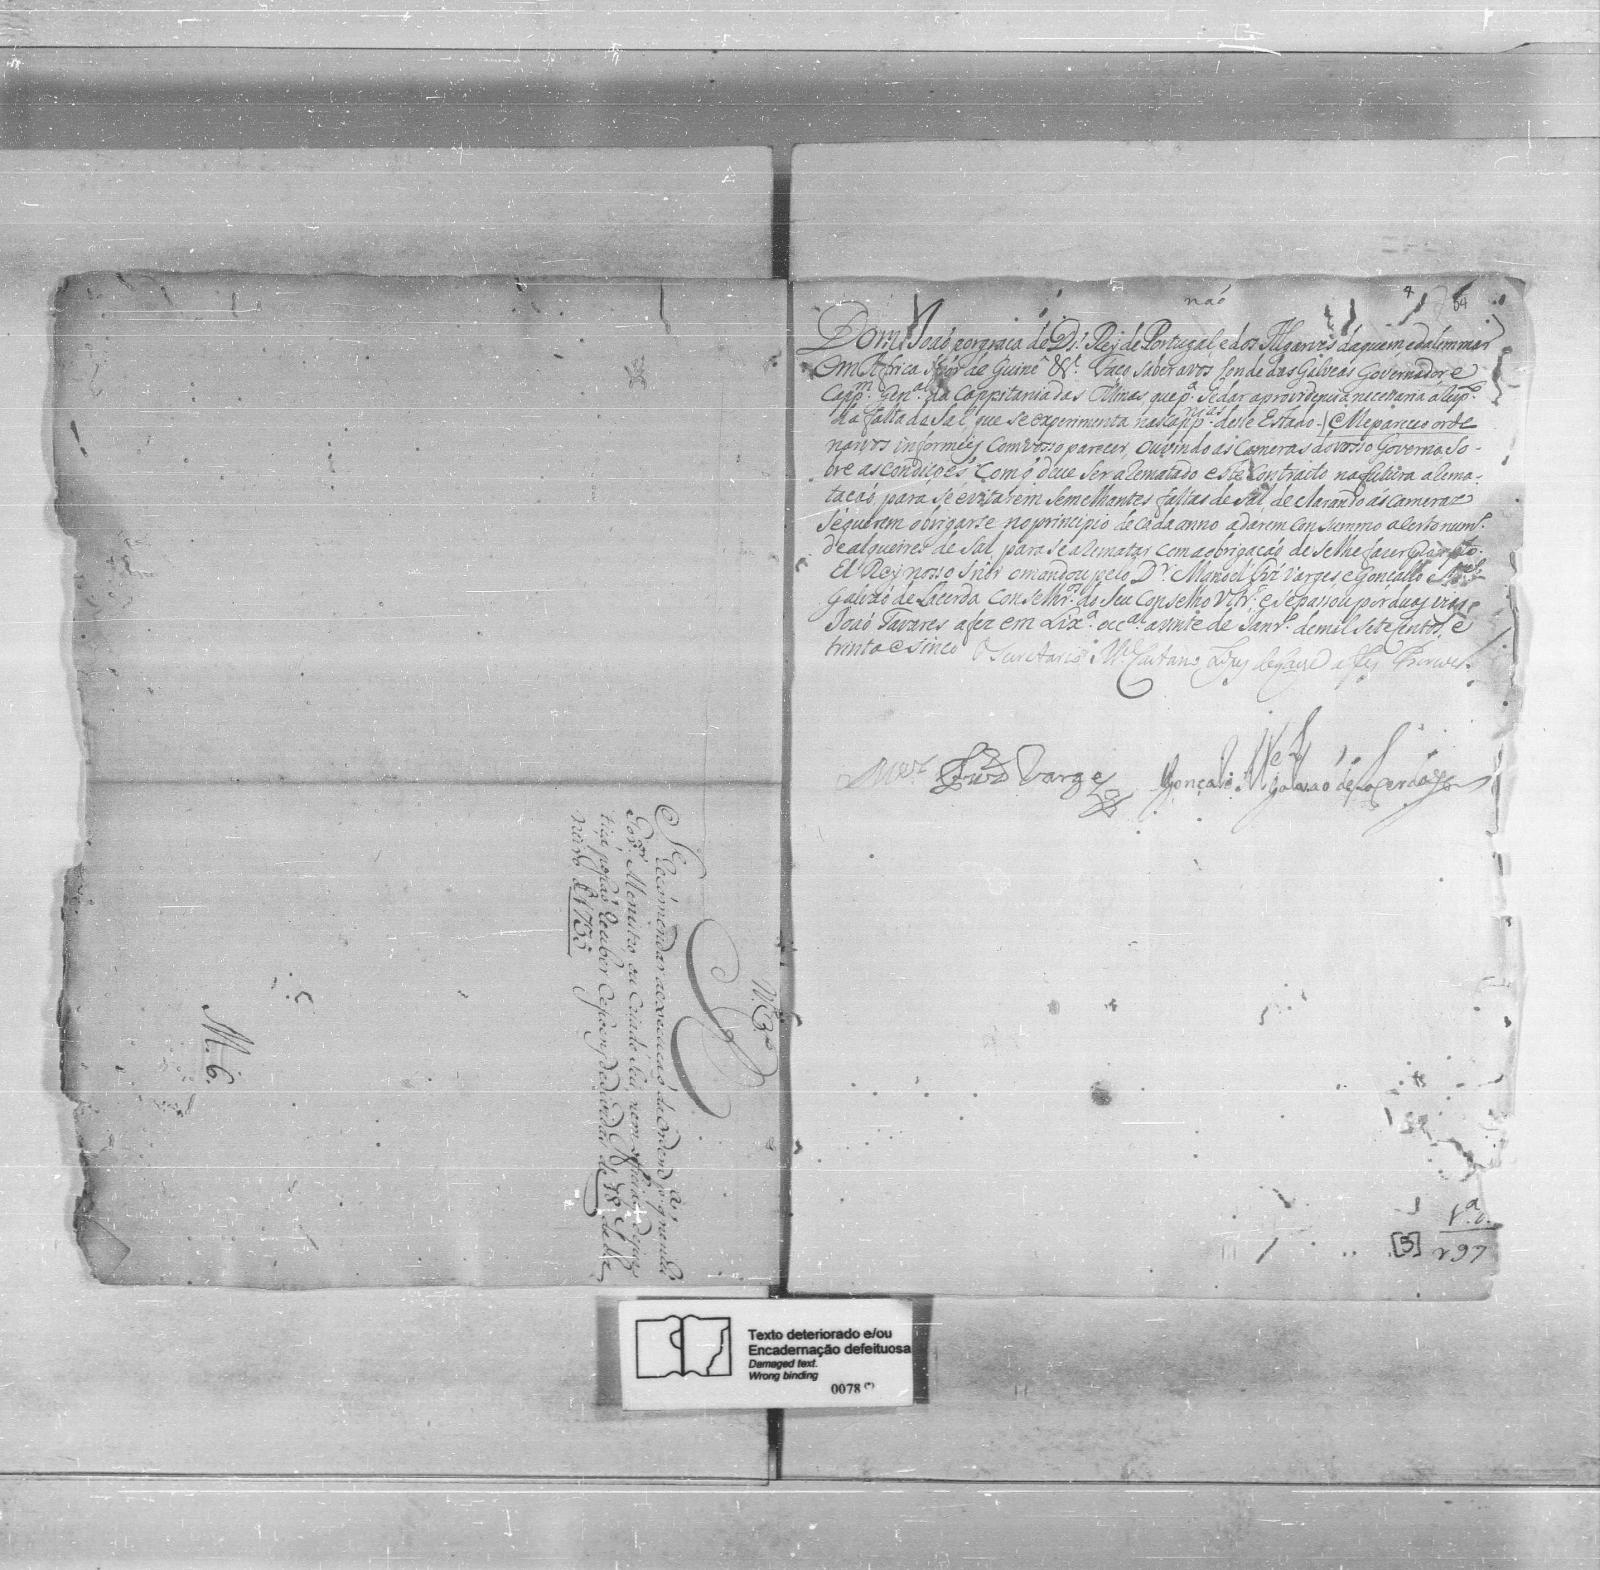 N. 3.º
Se recomendar a execuçaõ da Ordem p.ª q̃ nenhũ
Gov.ᵒʳ Menistro ou Criado Seu, nem official de jus
tiça possaõ receber
neiro de 1735
M. 6.
naõ
4
54
Dom Joaõ por graça de D.ˢ Rey de Portugal, e dos Algarves daquem e dalem mar
em Africa S.ºʳ de Guiné &.ª Faço saber avós Conde das Galveas Governador e
Cap.ᵐ Gen.ᵃˡ da Cappitania das Minas que p.ª se dar a providencia necessaria a
da falta de Sal, que se experimenta nas Capp.ⁿⁱᵃˢ desse Estado. Me pareceo orde
narvos informeis com vosso parecer, ouvindo as Cameras do vosso Governo, so-
bre as condiçoẽs com q̃ deve ser arematado este Contracto na futura arema-
taçaõ, para se evitarem semelhantes faltas de Sal, declarando as Cameras
se querem obrigarse no principio de cada anno a darem consummo a certo num.º
de alqueires de Sal, para se arematar com a obrigaçaõ de se lhe fazer
El Rey nosso S.ºʳ o mandou pelo D.ʳ Manoel Frz̃ Varges e Gonçallo M.ᵉˡ
Galvaõ de Lacerda Conselhr.ºˢ do Seu Conselho Vltr.º e se passou por duas vias,
Joaõ Tavares a fez em Lix.ª occ.ᵃˡ a vinte de Janr.º de mil setecentos, e
trinta e sinco O Secretario M.ᵉˡ Caetano Lopes de Lavre a fez escrever.
M.ᵉˡ Frz̃ Varges
Gonçalo M.ᵉˡ Galvaõ de Lacerda
1.ª v.
[5] 297
Texto deteriorado e/ou
Encadernação defeituosa
Damaged text.
Wrong binding
0078 (*)